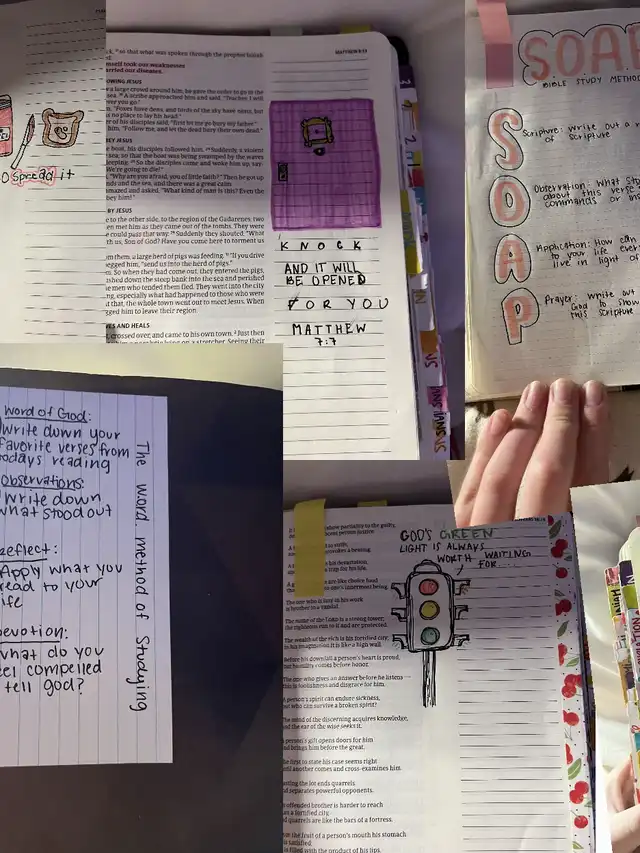 Spread it
so that what was spoken through the prophet Isaiah
himself took our weaknesses
carried our diseases.
MATTHEW 8:33
OWING JESUS
a large crowd around him, he gave the order to go to the
A scribe approached him and said, "Teacher, I will
ver you go."
"Foxes have dens, and birds of the sky have nests, but
no place to lay his head."
of his disciples said, "first let me go bury my father."
him, "Follow me, and let the dead bury their own dead."
EY JESUS
he boat, his disciples followed him. Suddenly, a violent
sea, so that the boat was being swamped by the waves
eeping. So the disciples came and woke him up, say-
We're going to die!"
"Why are you afraid, you of little faith?" Then he got up
nds and the sea, and there was a great calm.
mazed and asked, "What kind of man is this? Even the
bey him!"
BY JESUS
to the other side, to the region of the Gadarenes, two
en met him as they came out of the tombs. They were
e could pass that way. Suddenly they shouted, "What
th us, Son of God? Have you come here to torment us
om them, a large herd of pigs was feeding. "If you drive
egged him, "send us into the herd of pigs."
m. So when they had come out, they entered the pigs,
shed down the steep bank into the sea and perished
e men who tended them fled. They went into the city
ng, especially what had happened to those who were
that, the whole town went out to meet Jesus. When
gged him to leave their region.
ES AND HEALS
crossed over, and came to his own town. Just then
KNOCK
AND IT WILL
BE OPENED
FOR YOU
MATTHEW
7:7
SOAP
BIBLE STUDY METHOD
S
Scripture: Write out a
of scripture
O
Observation: What
about this verse
commands or
A
Application: How can
to your life
live in light of
P
Prayer: Write out
God to show
this scripture
Word of God:
Write down your
favorite verses from
todays reading
Observations:
Write down
what stood out
Reflect:
Apply what you
read to your
life
Devotion:
what do you
feel compelled
tell god?
The word method of Studying
GOD'S GREEN
LIGHT IS ALWAYS
WORTH WAITING
FOR....
show partiality to the guilty,
his devastation,
a trap for his life.
are like choice food
one's innermost being.
The one who is lazy in his work
is brother to a vandal.
The name of the LORD is a strong tower;
the righteous run to it and are protected.
The wealth of the rich is his fortified city;
in his imagination it is like a high wall.
Before his downfall a person's heart is proud,
but humility comes before honor.
The one who gives an answer before he listens —
this is foolishness and disgrace for him.
A person's spirit can endure sickness,
but who can survive a broken spirit?
The mind of the discerning acquires knowledge,
and the ear of the wise seeks it.
A person's gift opens doors for him
and brings him before the great.
The first to state his case seems right
until another comes and cross-examines him.
Casting the lot ends quarrels
and separates powerful opponents.
An offended brother is harder to reach
than a fortified city,
and quarrels are like the bars of a fortress.
From the fruit of a person's mouth his stomach
is satisfied;
is filled with the product of his lips.